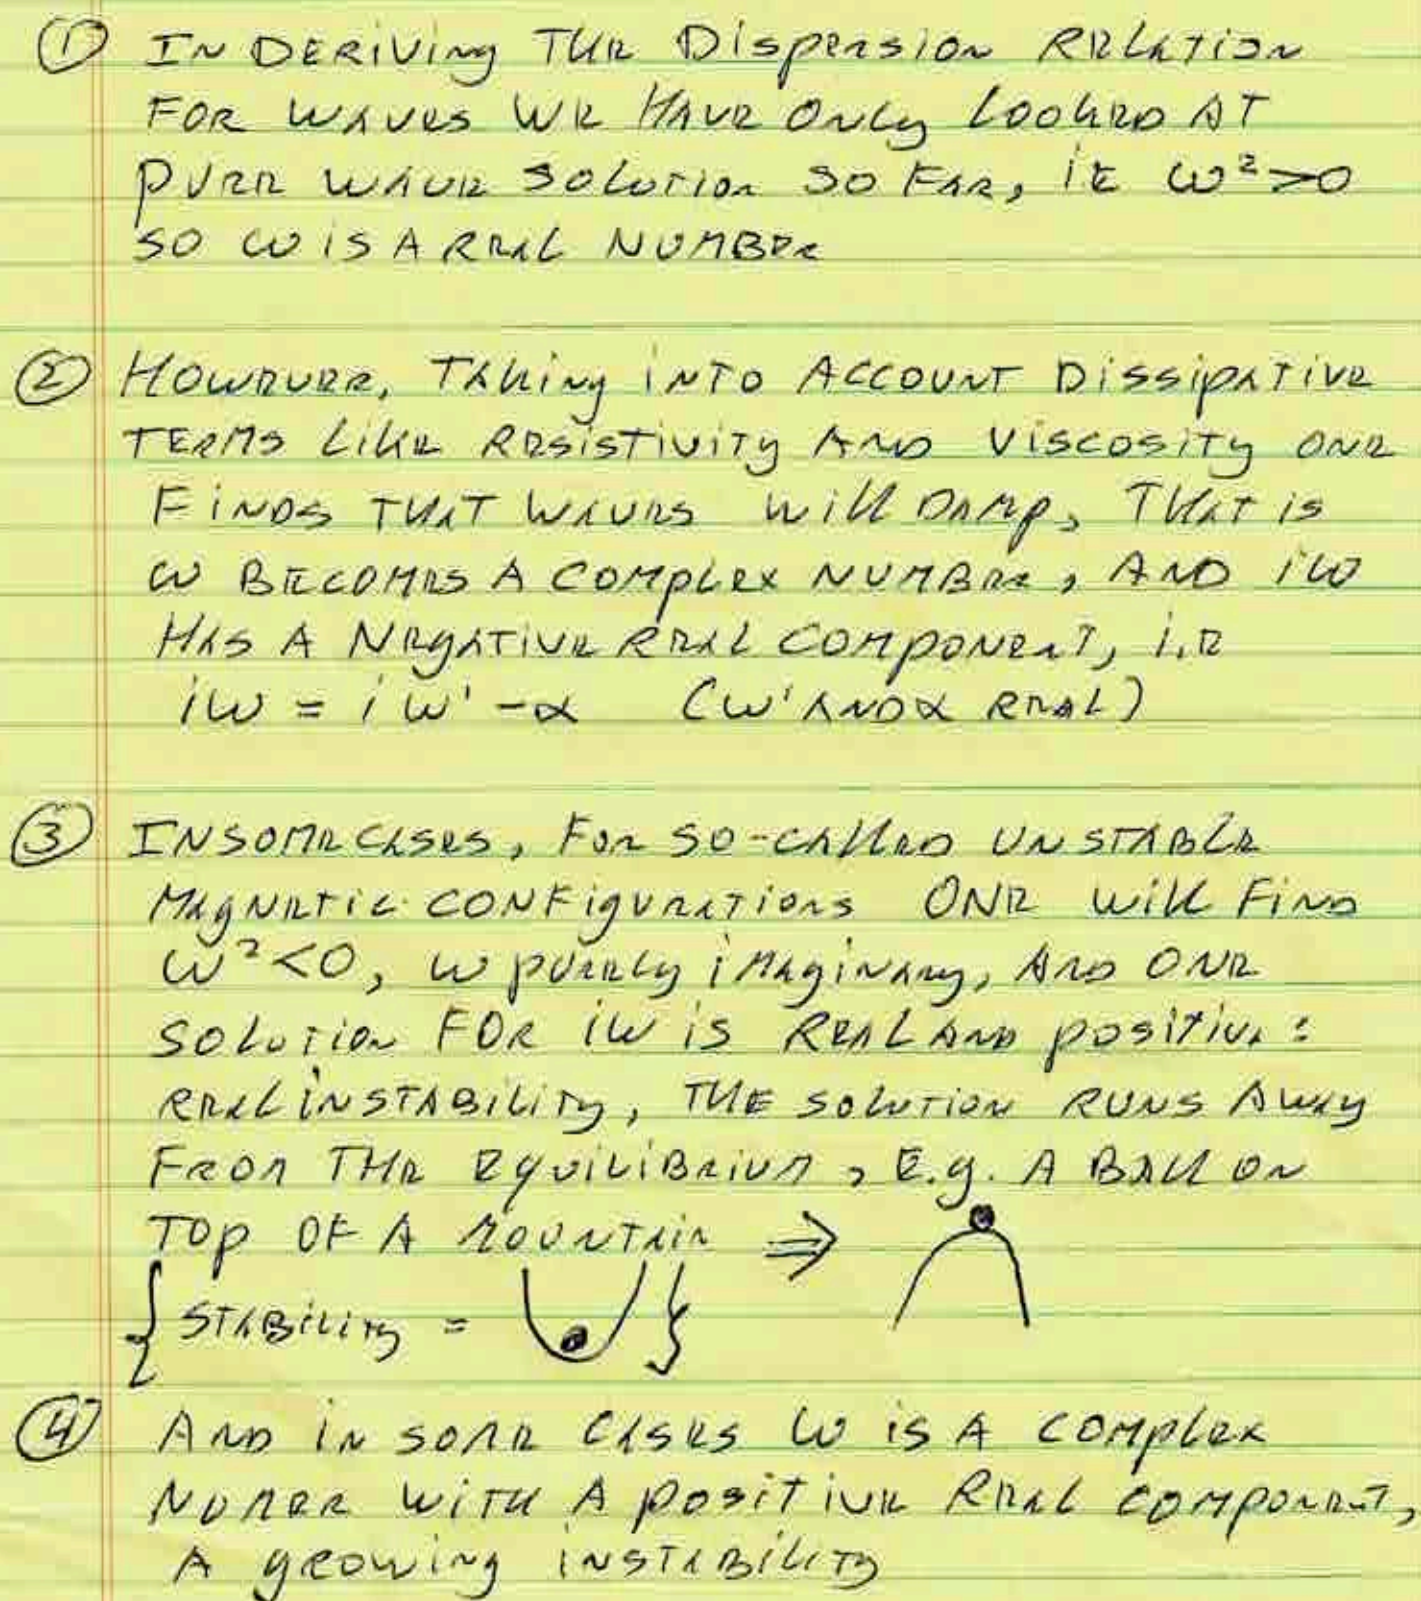 ① IN DERIVING THE DISPERSION RELATION
FOR WAVES WE HAVE ONLY LOOKED AT
PURE WAVE SOLUTION SO FAR, IE ω²>0
SO ω IS A REAL NUMBER
② HOWEVER, TAKING INTO ACCOUNT DISSIPATIVE
TERMS LIKE RESISTIVITY AND VISCOSITY ONE
FINDS THAT WAVES WILL DAMP, THAT IS
ω BECOMES A COMPLEX NUMBER, AND iω
HAS A NEGATIVE REAL COMPONENT, I.E
iω = iω' -α (ω' AND α REAL)
③ IN SOME CASES, FOR SO-CALLED UNSTABLE
MAGNETIC CONFIGURATIONS ONE WILL FIND
ω²<0, ω PURELY IMAGINARY, AND ONE
SOLUTION FOR iω IS REAL AND POSITIVE:
REAL INSTABILITY, THE SOLUTION RUNS AWAY
FROM THE EQUILIBRIUM, E.g. A BALL ON
TOP OF A MOUNTAIN ⇒
{ STABILITY = }
④ AND IN SOME CASES ω IS A COMPLEX
NUMER WITH A POSITIVE REAL COMPONENT,
A GROWING INSTABILITY